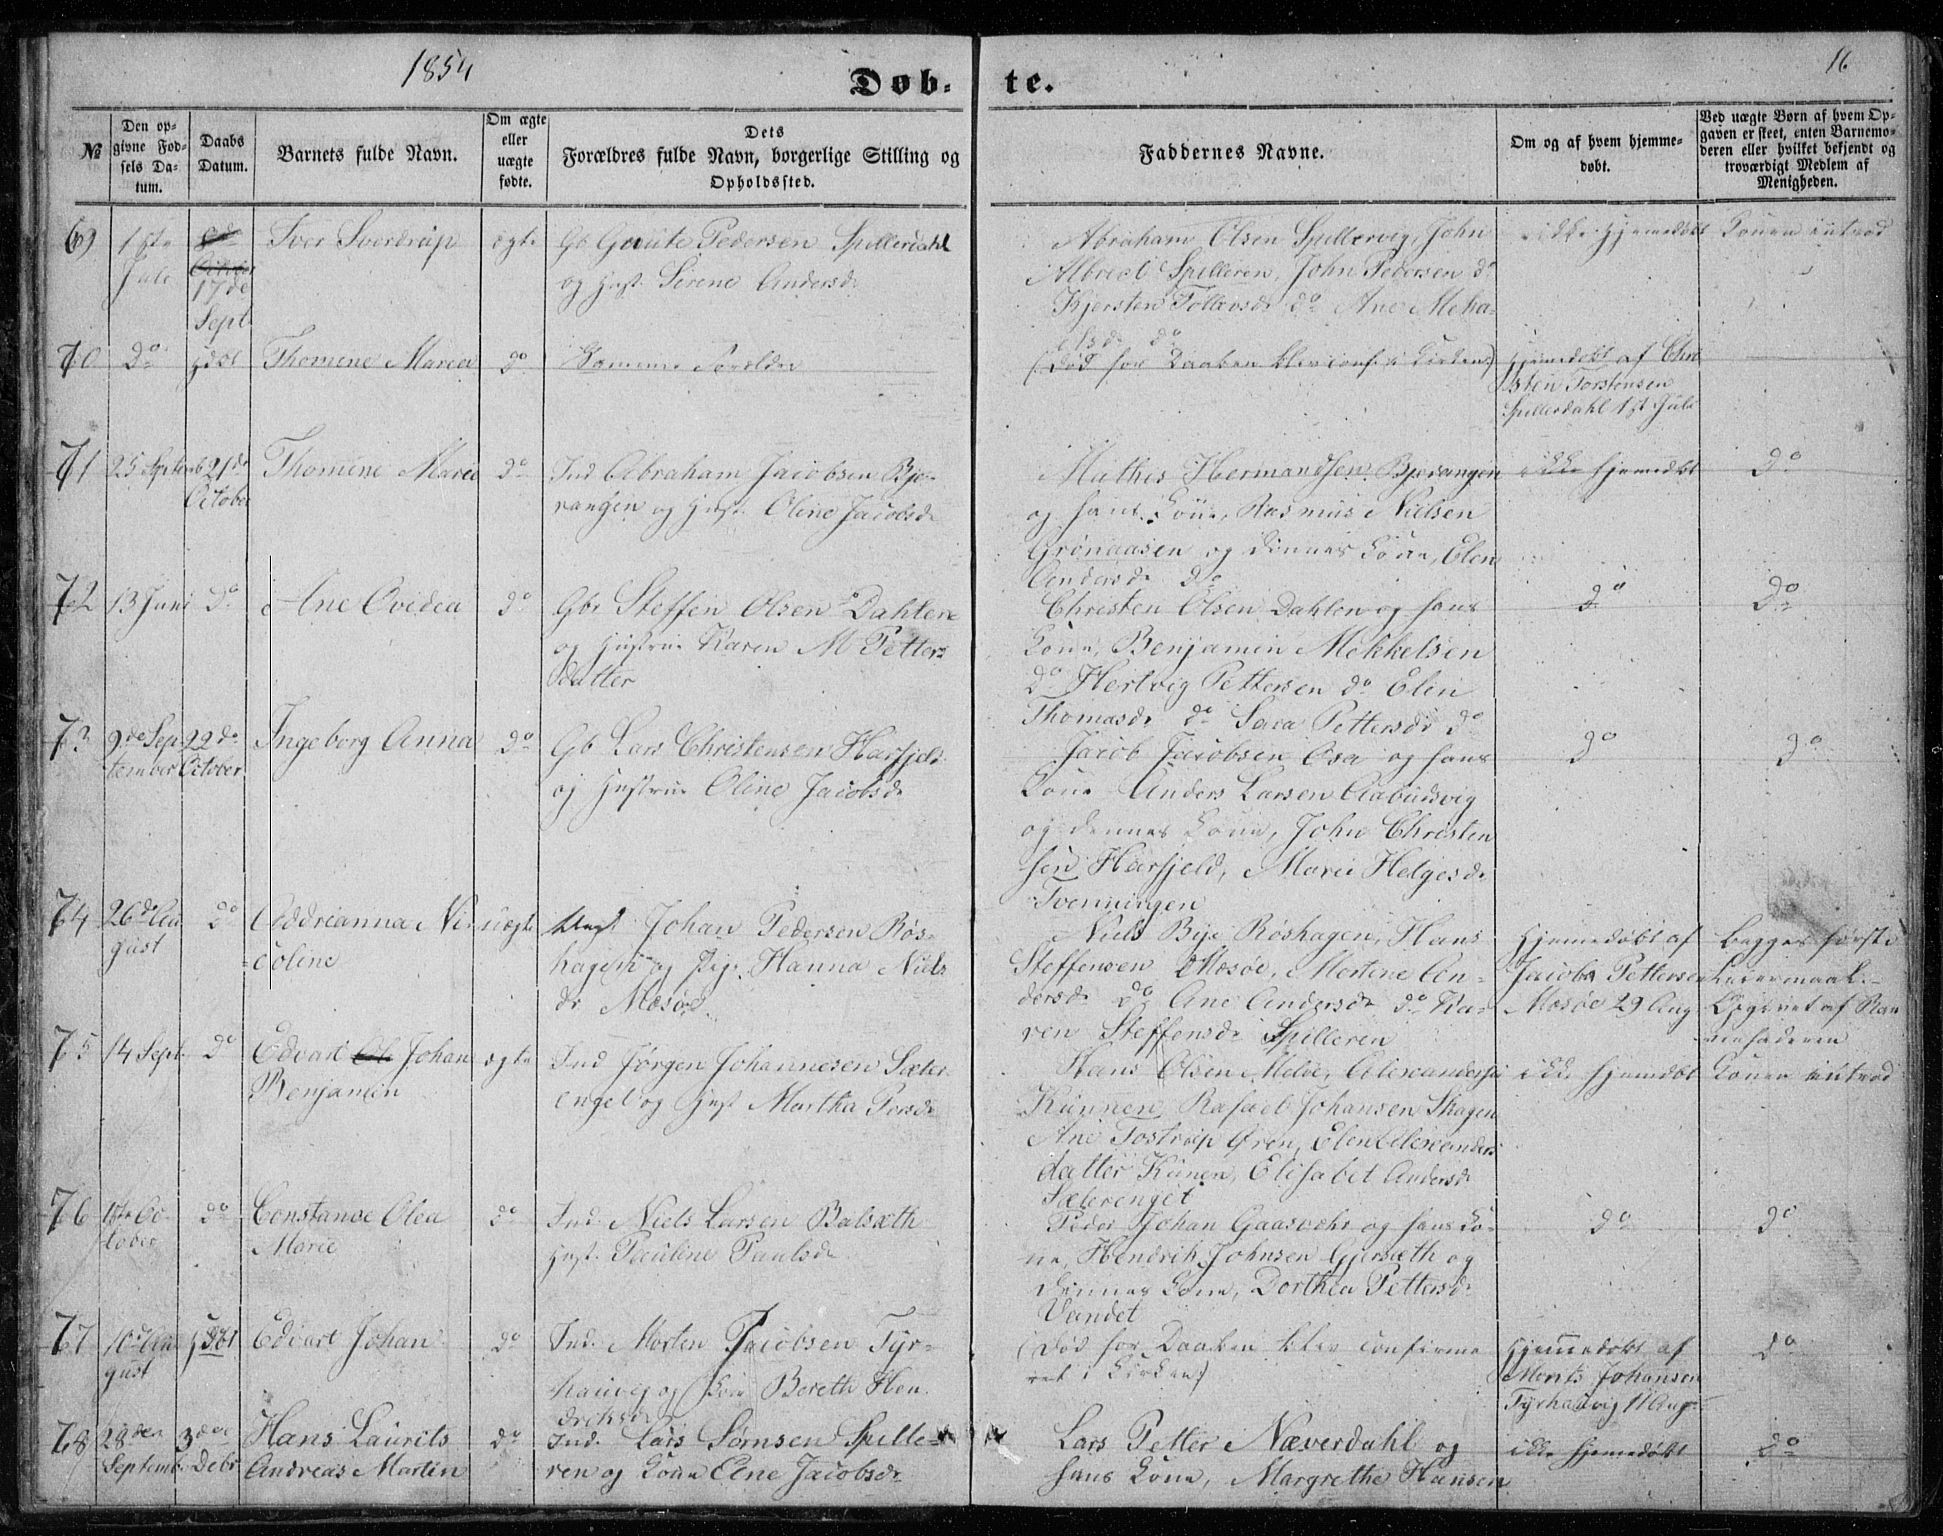 1854
Døb-
te.
16
№
Den op-
givne Fød-
sels Da-
tum.
Daabs
Datum.
Barnets fulde Navn.
Om ægte
eller
uægte
fødte.
Dets
Forældres fulde Navn, borgerlige Stilling og
Opholdssted.
Faddernes Navne.
Om og af hvem hjemme-
døbt.
Ved uægte Børn af hvem Op-
gaven er skeet, enten Barnemo-
deren eller hvilket bekjendt og
troværdigt Medlem af
Menigheden.
69
1ste
Juli
October
17de
Sept.
Iver Sverdrup
ægte
Gb Gaute Pedersen Spillerdahl
og Hust. Sirene Andersd.
Abraham Olsen Spillervig, John
Albreet Spilleren, John Pedersen do
Kjersten Tollevsd. do Ane Meka-
elsd. do
ikke hjemedøbt
Konen introd
70
do
hdøbt
Thomine Marea
do
Samme Foreldre
(Død før Daaben blev conf. i Kirken)
Hjemedøbt af Chri
sten Torstensen
Spillerdahl 1st Juli
71
25 Septemb
21de
October
Thomine Marea
do
Ind Abraham Jacobsen Bje-
rangen og Hust. Oline Jacobsd.
Mathis Hermandsen Bjerangen
og hans Kone, Rasmus Nielsen
Grønaasen og dennes Kone, Elen
Andersd. do
ikke hjemedøbt
do
72
13 Juni
do
Ane Ovidea
do
Gbr Steffen Olsen Dahlen
og Hustrue Karen M Petters
datter
Christen Olsen Dahlen og hans
Kone, Benjamin Mekkelsen
do Hertvig Pettersen do Elen
Thomasd. do Sara Pettersd. do
do
do
73
9de Sep
tember
22de
October
Ingeborg Anna
do
Gb Lars Christensen Harfjeld
og Hustrue Oline Jacobsd.
Jacob Jacobsen Osa og hans
Kone Anders Larsen Aabudsvig
og dennes Kone, John Christen
sen Harfjeld, Marie Helgesd.
Tvenningen
do
do
74
26de Au
gust
do
Addrianna Ni-
coline
uægte
Ungk. Johan Pedersen Røs-
hagen og Pige Hanna Niels
dr Mesøe
Niels Bye Røshagen, Hans
Steffensen Mesøe, Mortine An-
dersd. do Ane Andersd. do Ka-
ren Steffensd. Spilleren
Hjemmedøbt af
Jacob Pettersen
Mesøe 29 Aug
Begges første
Leiermaal.
Opgivet af Bar
nefaderen
75
14 Sept.
do
Edvart Johan
Benjamin
ægte
Ind Jørgen Johannesen Sæter-
enget og Hust Martha Persd.
Hans Olsen Meløe, Alexander
Kunnen, Rafael Johansen Skagen
Ane Tostrup Øren, Elen Alexanders
datter Kunen, Elisabet Andersd.
Sæterenget
ikke hjemdøbt
Konen introd
76
1ste Oc
tober
do
Constance Olea
Marie
do
Ind. Niels Larsen Balsæth
Hust. Pauline Paulsd.
Peder Johan Gaasvær og hans Ko-
ne, Hendrik Johnsen Gjersæth og
dennes Kone, Dorthea Pettersd.
Vandet
do
do
77
10de Au
gust
hdøbt
Edvart Johan
do
Ind. Morten Jacobsen Tyr-
hauvig og Kone Berethe Hen
driksd.
(Død før Daaben blev confirme
ret i Kirken)
Hjemmedøbt af
Monts Johansen
Tyrhauvig 11 Aug
do
78
28den
Septemb
3den
Debr
Hans Laurits
Andreas Martin
do
Ind. Lars Sørnsen Spille-
ren og Kone Ane Jacobsd.
Lars Petter Næverdahl og
hans Kone, Margrethe Hansen
ikke hjemedøbt
do